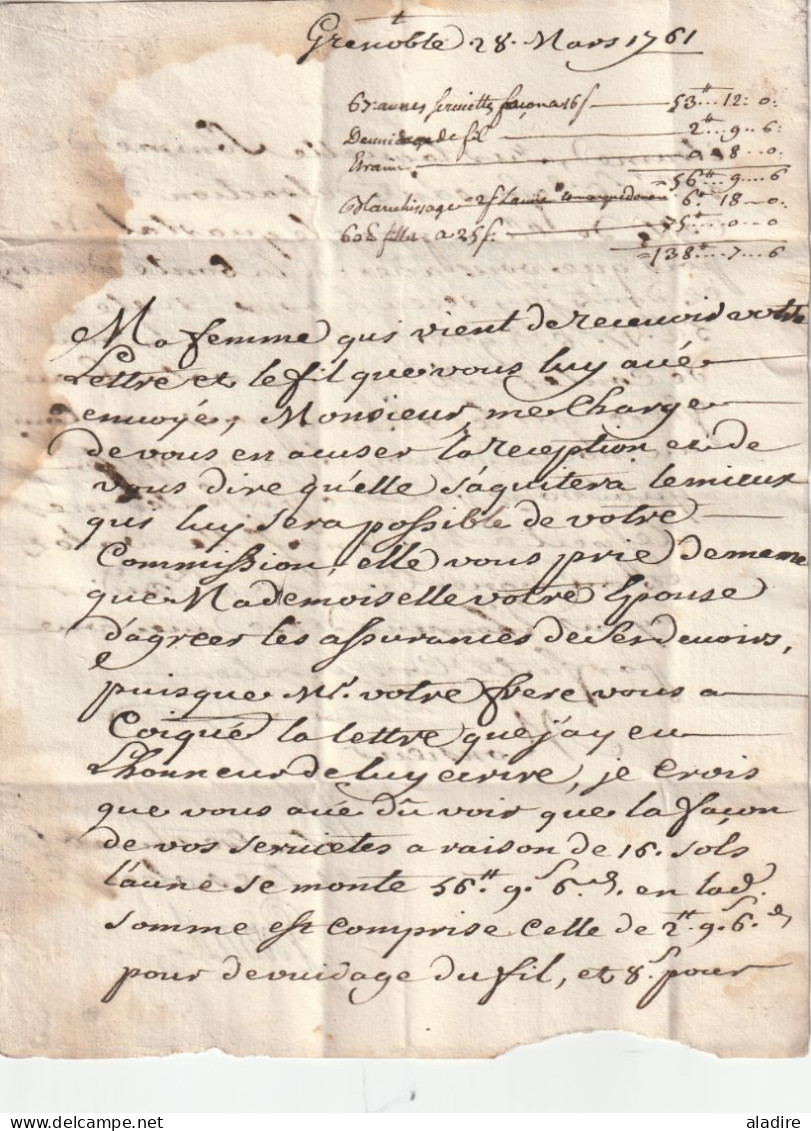 Grenoble 28. Mars 1761
67 aunes serviettes façon a 16ſ — 53ᵗᵗ... 12: 0.
Devuidage de fil — 2ᵗᵗ... 9.. 6:
0.. 8...0.
= 56ᵗᵗ... 9... 6
Blanchissage a 2ſ L'aune 6ᵗᵗ. 18..0.
60 a 25ſ. — 75ᵗᵗ..0...0
= 138ᵗᵗ... 7.. 6
Ma femme qui vient de recevoir votre
Lettre et le fil que vous luy avé
envoyé, Monsieur, me charge
de vous en acuser la reception et de
vous dire qu'elle s'aquitera le mieux
qui luy sera possible de votre
Commission, elle vous prie de meme
que Mademoiselle votre Epouse
d'agreer les assurances de ses devoirs,
puisque Mr. votre frere vous a
Coipié la lettre que j'ay eu
L'honneur de luy ecrire, je crois
que vous avé dû voir que la façon
de vos servietes a raison de 16. sols
l'aune se monte 56ᵗᵗ 9.ſ 6.d. en lad.
somme est comprise celle de 2ᵗᵗ 9.ſ 6.d
pour devuidage du fil, et 8.ſ pour
delcampe.net
aladire